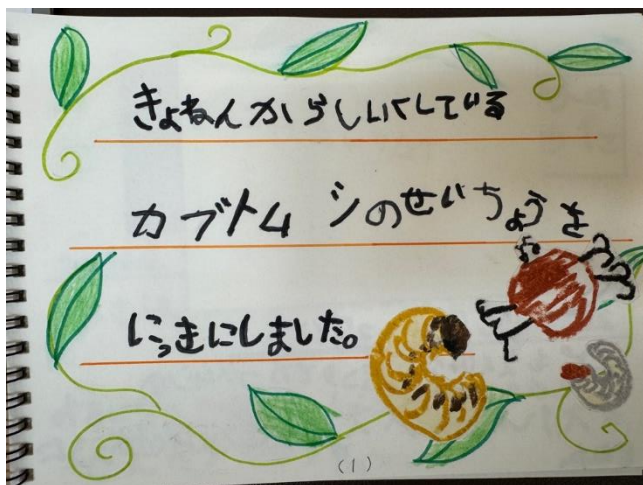 きょねんからしいくしている
カブトムシのせいちょうを
にっきにしました。
(1)